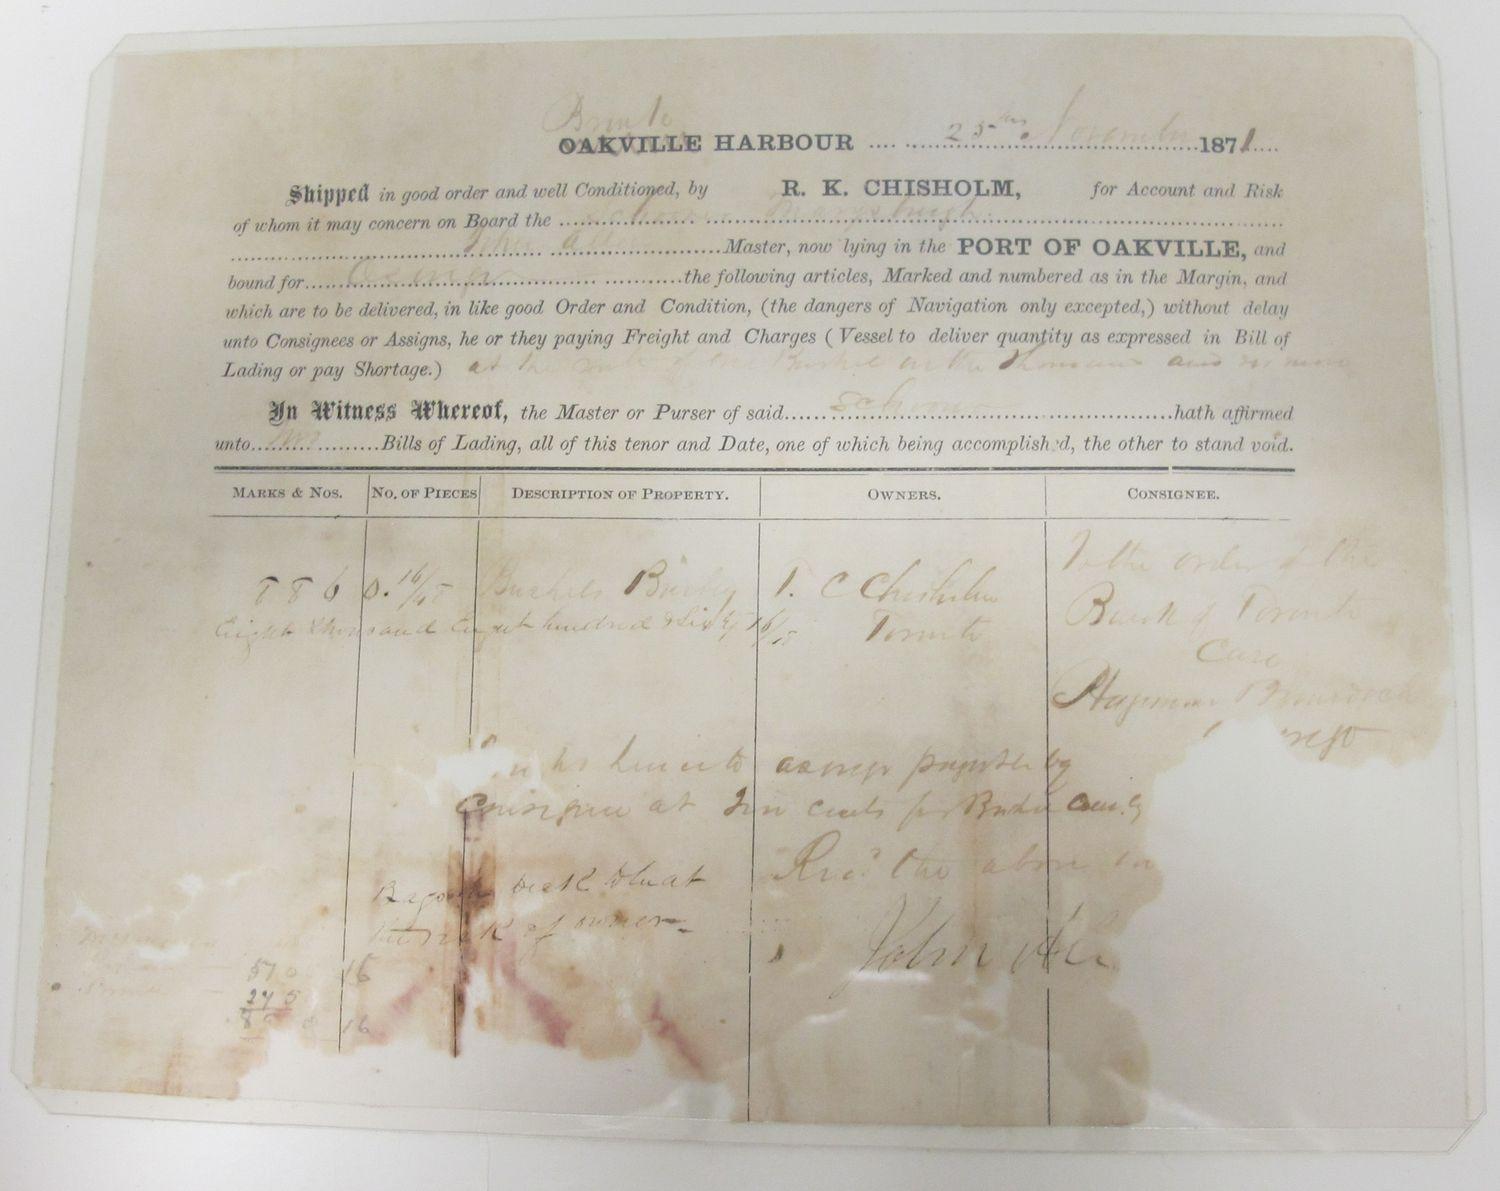 Bronte
OAKVILLE HARBOUR .... 25th November 1871....
Shipped in good order and well Conditioned, by R. K. CHISHOLM, for Account and Risk
of whom it may concern on Board the Schooner Marysburgh
John Allen Master, now lying in the PORT OF OAKVILLE, and
bound for Oswego the following articles, Marked and numbered as in the Margin, and
which are to be delivered, in like good Order and Condition, (the dangers of Navigation only excepted,) without delay
unto Consignees or Assigns, he or they paying Freight and Charges (Vessel to deliver quantity as expressed in Bill of
Lading or pay Shortage.) at the rate of one Bushel on the Thousand and no more
In Witness Whereof, the Master or Purser of said Schooner hath affirmed
unto two Bills of Lading, all of this tenor and Date, one of which being accomplished, the other to stand void.
MARKS & NOS. NO. OF PIECES DESCRIPTION OF PROPERTY. OWNERS. CONSIGNEE.
8860. 16/48 Bushels Barley T. C Chisholm To the order of the
Eight thousand Eight hundred & Sixty 16/48 Toronto Bank of Toronto
Care
at Ten cents per Bushel
Rec'd the above in
wheat
at risk of owner
John
570 16
275
16